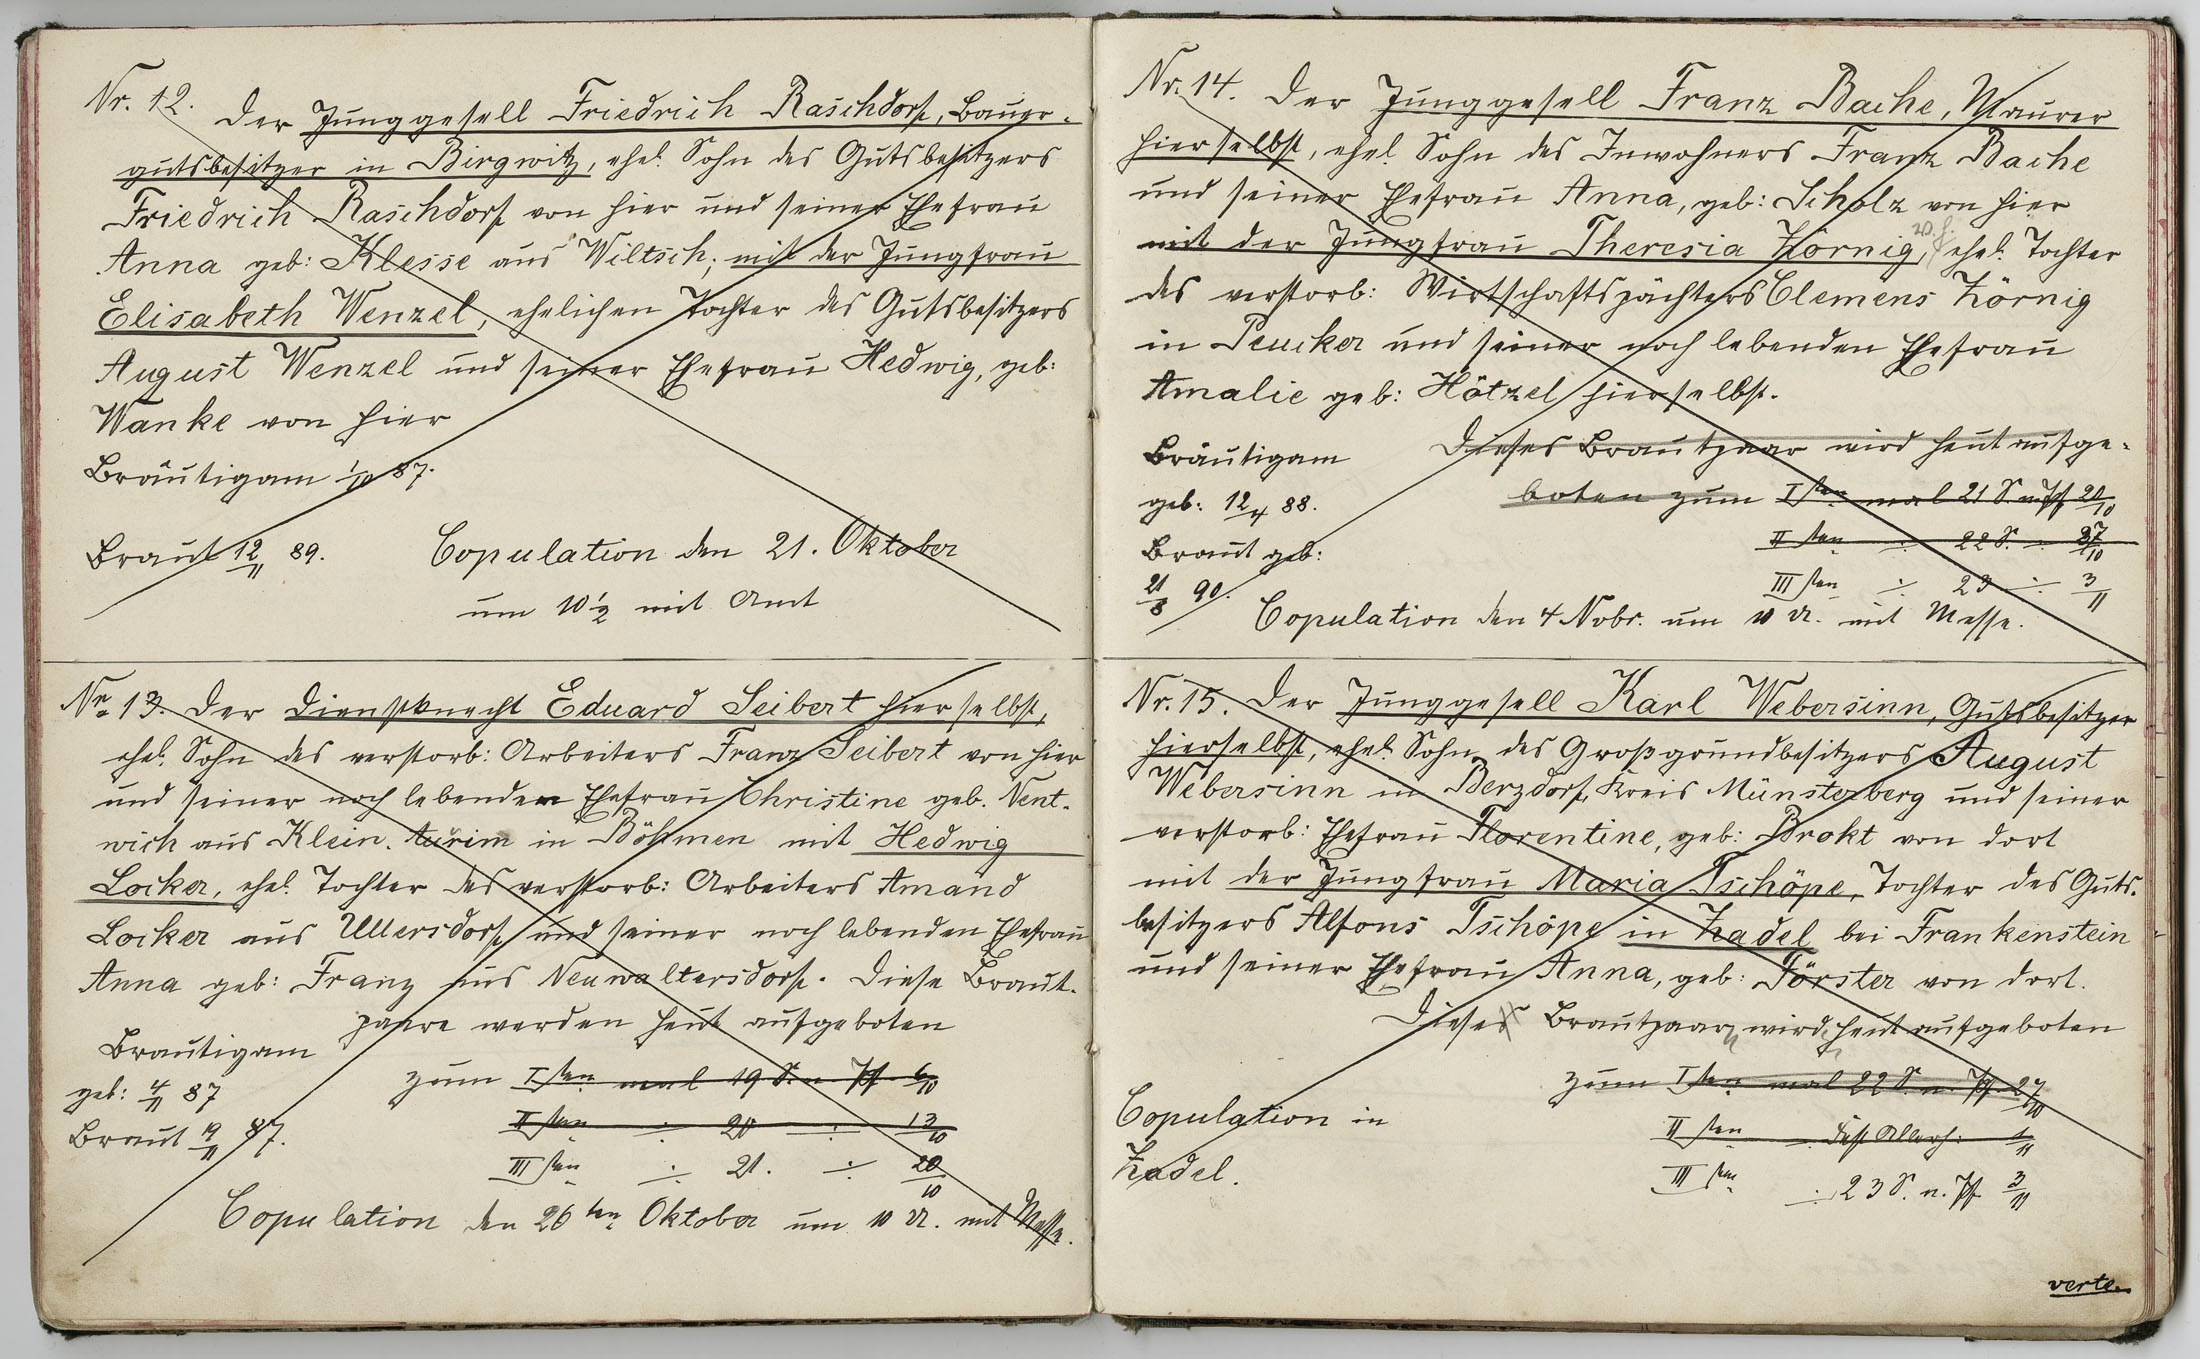 Nr. 12. Der Junggesell Friedrich Raschdorf, Bauer-
gutsbesitzer in Birgwitz, ehel. Sohn des Gutsbesitzers
Friedrich Raschdorf von hier und seiner Ehefrau
Anna geb: Klesse aus Wiltsch; mit der Jungfrau
Elisabeth Wenzel, ehelichen Tochter des Gutsbesitzers
August Wenzel und seiner Ehefrau Hedwig, geb:
Wanke von hier
Bräutigam 1/10 87.
Braut 12/11 89. Copulation den 21. Oktober
um 10 1/2 mit Amt
Nr. 13. Der Dienstknecht Eduard Seibert hierselbst,
ehel. Sohn des verstorb: Arbeiters Franz Seibert von hier
und seiner noch lebenden Ehefrau Christine geb. Nent-
wich aus Klein. in Böhmen mit Hedwig
Locker, ehel. Tochter des verstorb: Arbeiters Amand
Locker aus Ullersdorf und seiner noch lebenden Ehefrau
Anna geb: Franz aus Neuwaltersdorf. Diese Braut-
paare werden heut aufgeboten
Bräutigam
geb: 4/11 87
Braut 19/11 87.
zum Iten mal 19 S. n. Pf. 6/10
II ten ÷ 20 ÷ 13/10
III ten ÷ 21. ÷ 20/10
Copulation den 26ten Oktober um 10 U. mit Messe.
Nr. 14. Der Junggesell Franz Bache, Maurer
hierselbst, ehel. Sohn des Inwohners Franz Bache
und seiner Ehefrau Anna, geb: Scholz von hier
mit der Jungfrau Theresia Zörnig, v. h. ehel. Tochter
des verstorb: Wirtschaftspächters Clemens Zörnig
in Peucker und seiner noch lebenden Ehefrau
Amalie geb: Hötzel hierselbst.
Bräutigam
geb: 12/4 88.
Braut geb:
21/8 90.
Dieses Brautpaar wird heut aufge-
boten zum Iten mal 21 S. n. Pf. 20/10
II ten ÷ 22 S. ÷ 27/10
III ten ÷ 23 ÷ 3/11
Copulation den 4 Nobr. um 10 U. mit Messe.
Nr. 15. Der Junggesell Karl Webersinn, Gutsbesitzer
hierselbst, ehel. Sohn des Großgrundbesitzers August
Webersinn in Berzdorf, Kreis Münsterberg und seiner
verstorb: Ehefrau Florentine, geb: Brokt von dort
mit der Jungfrau Maria Tschöpe, Tochter des Guts-
besitzers Alfons Tschöpe in Zadel bei Frankenstein
und seiner Ehefrau Anna, geb: Förster von dort.
Dieses Brautpaar wird heut aufgeboten
zum Iten mal 22 S. n. Pf. 27/10
II ten ÷ Fest Allerh: 1/11
III ten ÷ 23 S. n. Pf. 3/11
Copulation in
Zadel.
verte.